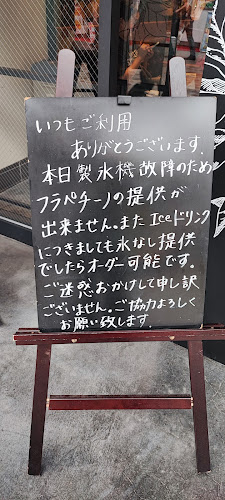 いつもご利用
ありがとうございます.
本日製氷機故障のため
フラペチーノの提供が
出来ません。また Iceドリンク
につきましても氷なし提供
でしたらオーダー可能です。
ご迷惑おかけして申し訳
ございません。ご協力よろしく
お願い致します.